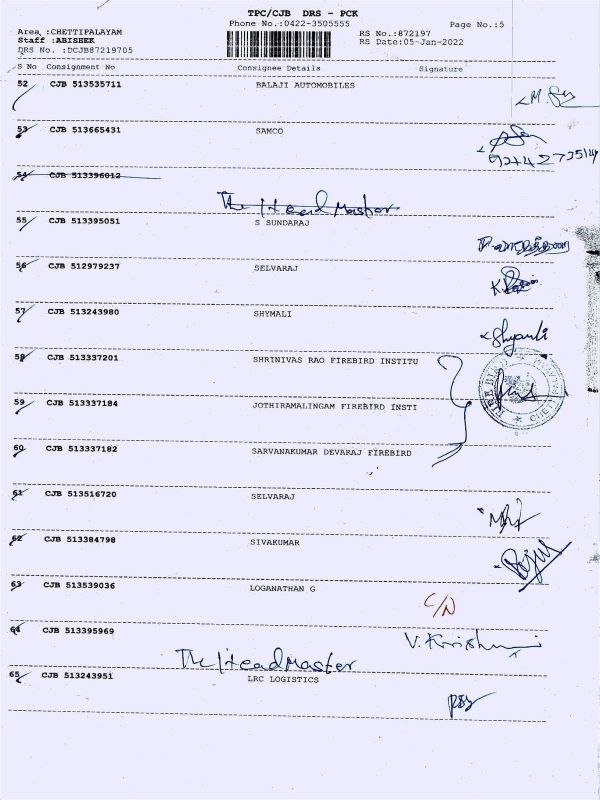 TPC/CJB DRS - PCK
Phone No.:0422-3505555
Page No.:5
Area :CHETTIPALAYAM
Staff :ABISHEK
DRS No. :DCJB87219705
RS No.:872197
RS Date:05-Jan-2022
S No Consignment No Consignee Details Signature
52 CJB 513535711 BALAJI AUTOMOBILES
53 CJB 513665431 SAMCO
54 CJB 513396012
The Head Master
55 CJB 513395051 S SUNDARAJ
56 CJB 512979237 SELVARAJ
57 CJB 513243980 SHYMALI
Shyamli
58 CJB 513337201 SHRINIVAS RAO FIREBIRD INSTITU
59 CJB 513337184 JOTHIRAMALINGAM FIREBIRD INSTI
60 CJB 513337182 SARVANAKUMAR DEVARAJ FIREBIRD
61 CJB 513516720 SELVARAJ
62 CJB 513384798 SIVAKUMAR
63 CJB 513539036 LOGANATHAN G
C/N
64 CJB 513395969
The HeadMaster
65 CJB 513243951 LRC LOGISTICS